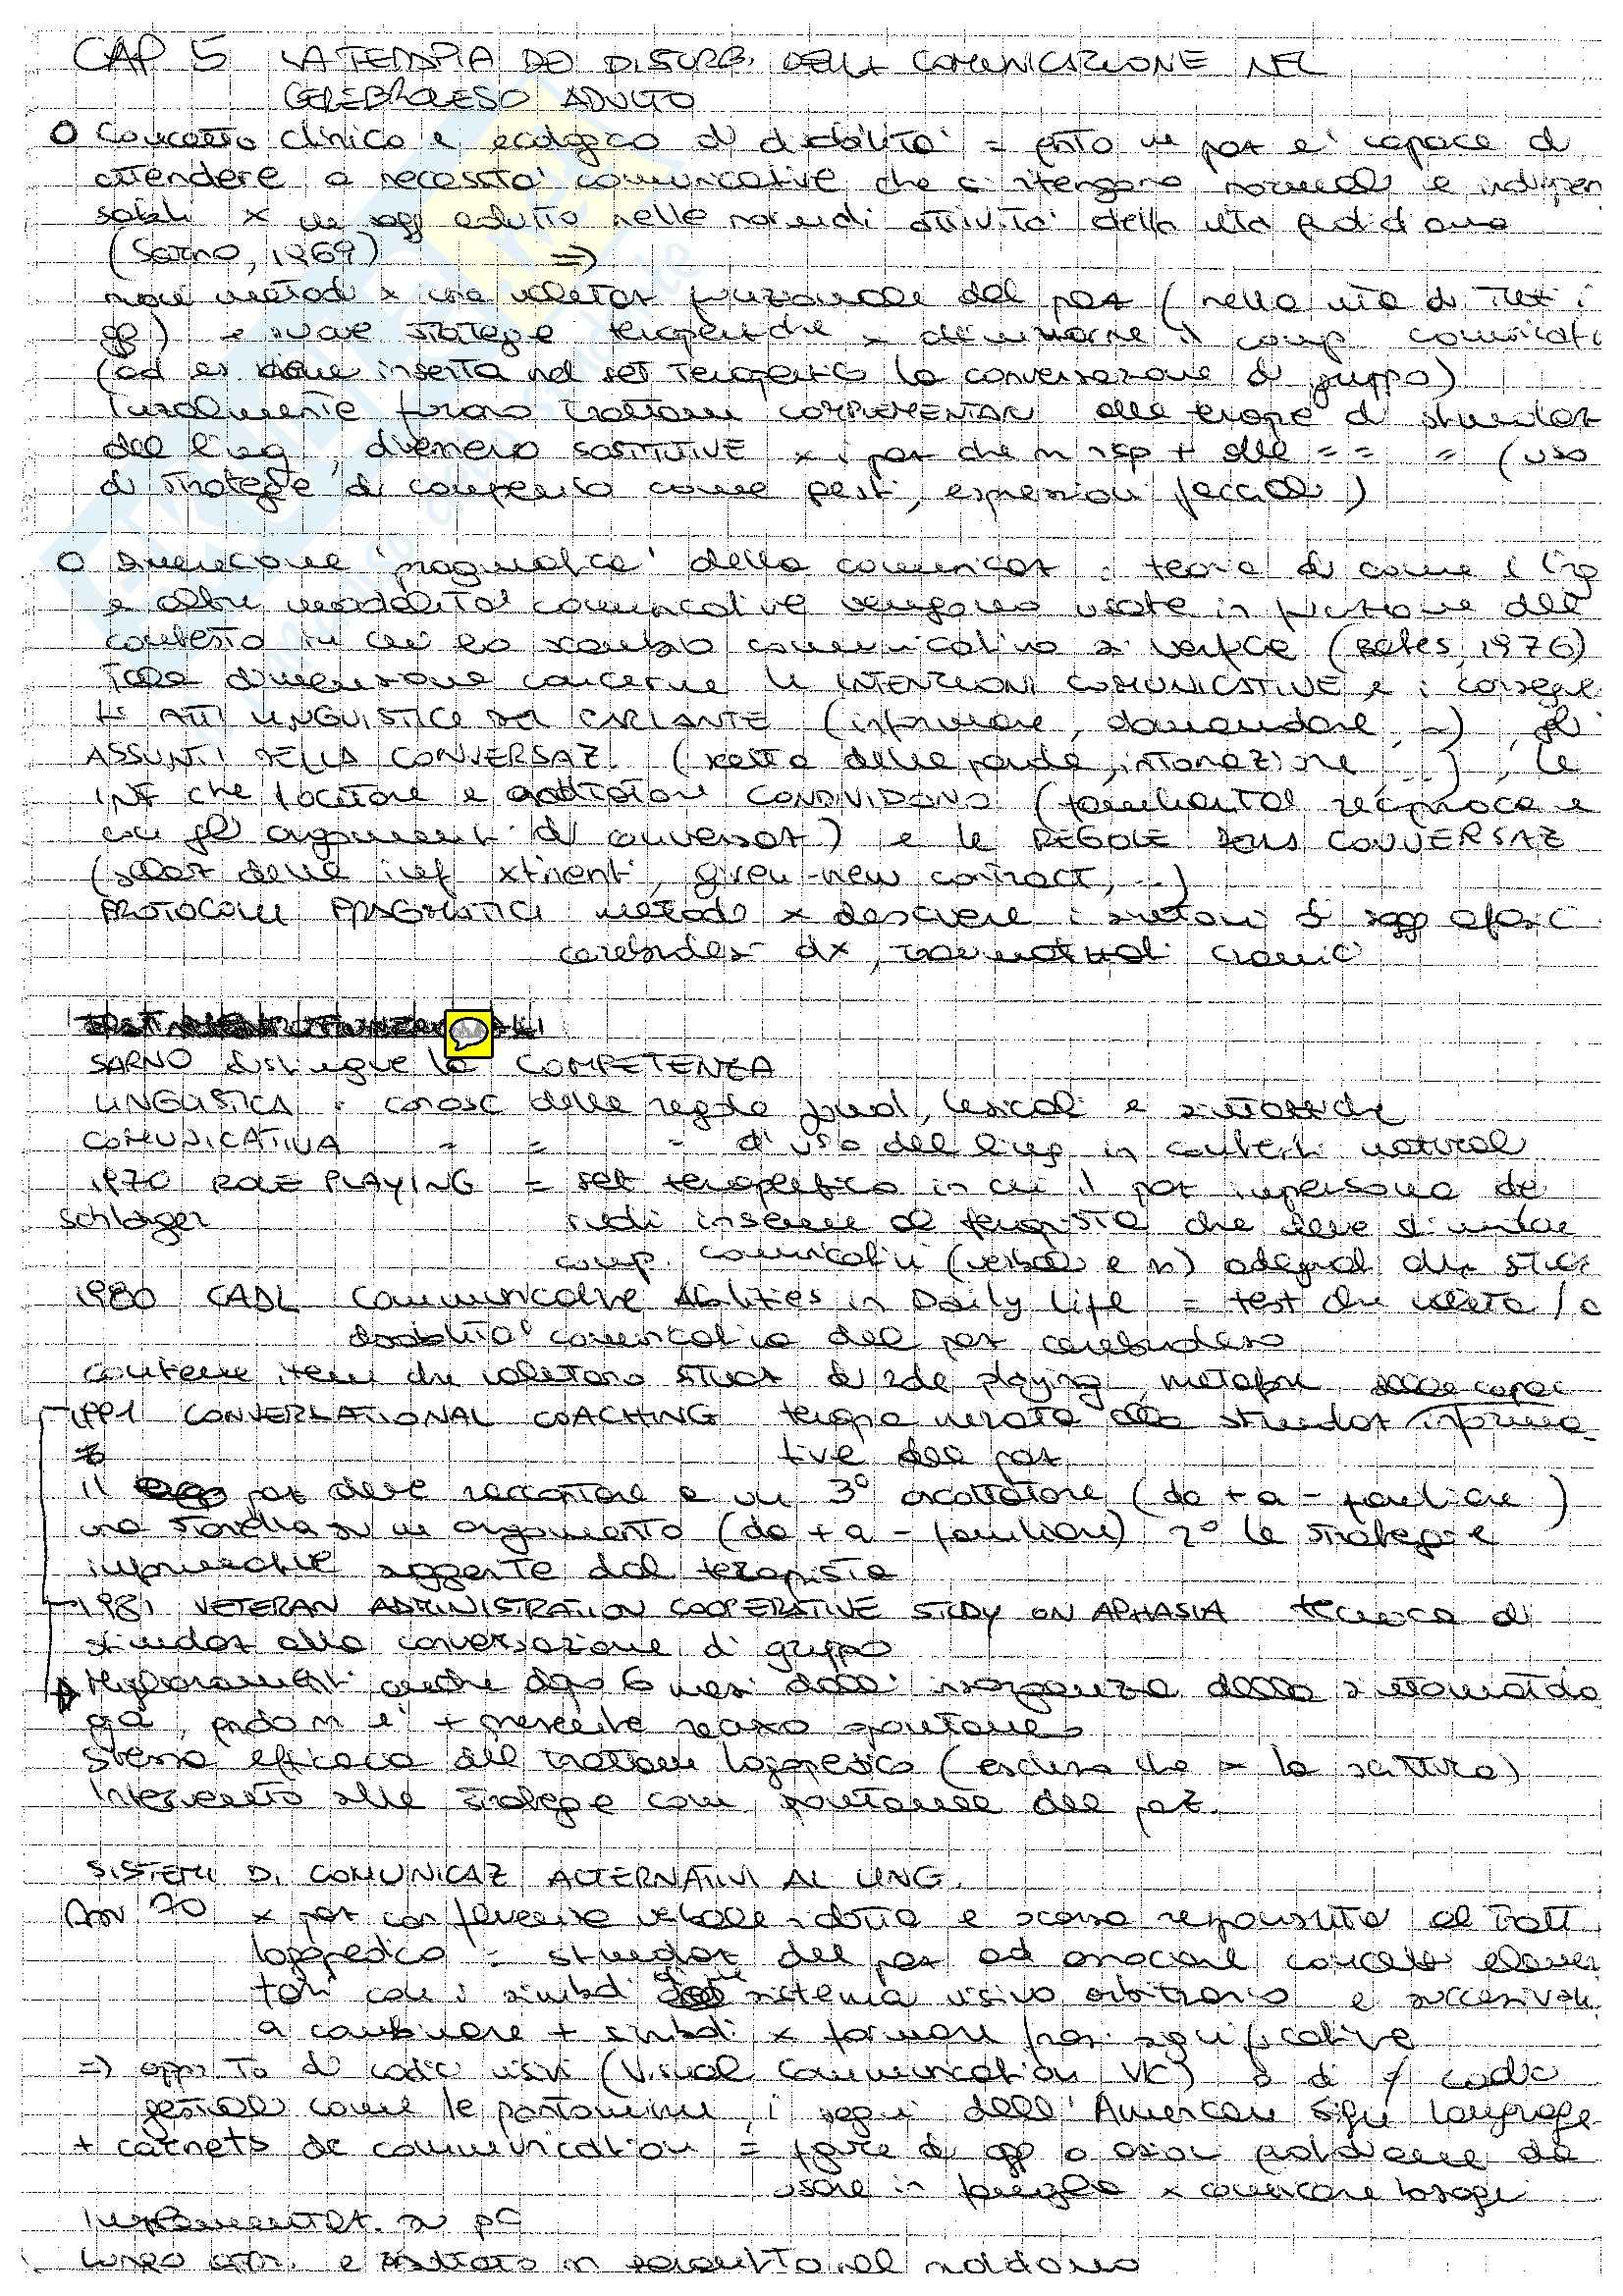 CAP 5 LA TERAPIA DEI DISTURBI DELLA COMUNICAZIONE NEL
CEREBROLESO ADULTO
O Concetto clinico e ecologico di disabilità = qnto un paz e' capace di
attendere a necessità comunicative che si ritengono normali e indispen
sabili x un sogg adulto nelle normali attività della vita quotidiana
(Sarno, 1969) =>
nuovi metodi x una valutaz funzionale del paz (nella vita di tutti i
gg) e nuove strategie terapeutiche x il comp comunicati
(ad es viene inserita nel set terapeutico la conversazione di gruppo)
Inizialmente furono trattam COMPLEMENTARI alle terapie di stimolaz
del ling, divennero SOSTITUTIVE x i paz che n risp + alle = = = (uso
di strategie di compenso come gesti, espressioni facciali)
O Dimensione 'pragmatica' della comunicaz : teoria di come il ling
e altre modalità comunicative vengono usate in funzione del
contesto in cui lo scambio comunicativo si verifica (Bates, 1976)
Tale dimensione concerne le INTENZIONI COMUNICATIVE e i consegue
ti ATTI LINGUISTICI DEL PARLANTE (informare, domandare, ...), gli
ASSUNTI DELLA CONVERSAZ. (scelta delle parole, intonazione, ...), le
INF che locutore e ascoltatore CONDIVIDONO (familiarità reciproca e
con gli argomenti di conversaz) e le REGOLE DELLA CONVERSAZ
(selez delle inf xtinenti, given-new contract, ...)
PROTOCOLLI PRAGMATICI metodo x descrivere i sintomi di sogg afasici
cerebrolesi dx, traumatizzati cronici
SARNO distingue la COMPETENZA
LINGUISTICA : conosc delle regole fonol, lessicali e sintattiche
COMUNICATIVA = = = d'uso del ling in contesti naturali
1970 ROLE PLAYING = set terapeutico in cui il paz impersona dei
Schlager ruoli insieme al terapista che deve stimolare
comp. comunicativi (verbali e n) adeguati alla situaz
1980 CADL Communicative Abilities in Daily Life = test che valuta la
disabilità comunicativa del paz cerebroleso
contiene items che valutano situaz di role playing, metafore
1991 CONVERSATIONAL COACHING terapia mirata alla stimolaz delle capac informa-
tive del paz
il paz deve raccontare a un 3° ascoltatore (da + a - familiare)
una storiella su un argomento (da + a - familiare) 2° le strategie
informative suggerite dal terapista
1981 VETERAN ADMINISTRATION COOPERATIVE STUDY ON APHASIA tecnica di
stimolaz alla conversazione di gruppo
Miglioramenti anche dopo 6 mesi dall'insorgenza della sintomatolo
gia, quando n e' + presente recupero spontaneo
Stessa efficacia del trattam logopedico (escluso che x la scrittura)
Intervento alle strategie com spontanee del paz.
SISTEMI DI COMUNICAZ ALTERNATIVI AL LING.
Anni 70 x paz con fluenza verbale ridotta e scarsa responsività al tratt
logopedico = stimolaz del paz ad associare concetti elemen
tari con i simboli di un sistema visivo arbitrario e successivam
a combinare + simboli x formare frasi significative
=> opp si tto di codici visivi (Visual Communication VIC) o di codici
gestuali come le pantomime, i segni dell'American Sign Language
+ carnets de communication = figure di ogg o azioni quotidiane da
usare in famiglia x comunicare bisogni
Implementaz. su PC